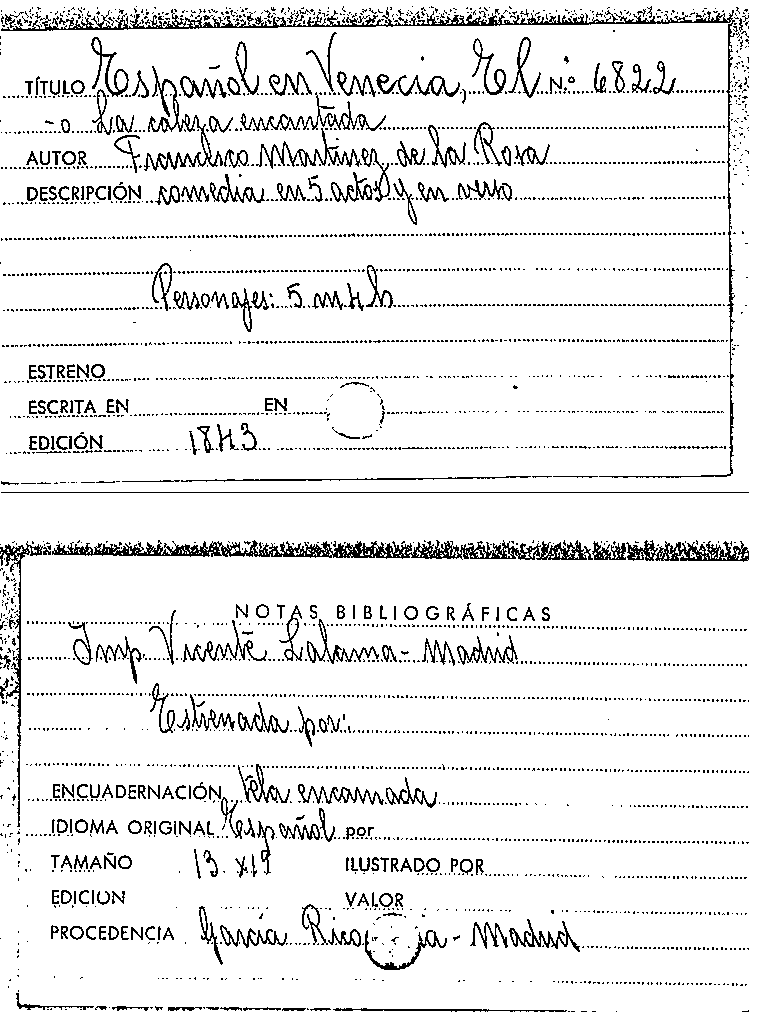 TÍTULO Español en Venecia, El N.º 6822
-o La cabeza encantada
AUTOR Francisco Martinez de la Rosa
DESCRIPCIÓN comedia en 5 actos y en verso
Personajes: 5 m 4 h
ESTRENO
ESCRITA EN EN
EDICIÓN 1843
NOTAS BIBLIOGRÁFICAS
Imp. Vicente Lalama - Madrid
Estrenada por:
ENCUADERNACIÓN tela encarnada
IDIOMA ORIGINAL Español por
TAMAÑO 13 x 19 ILUSTRADO POR
EDICION VALOR
PROCEDENCIA García Rico - Madrid